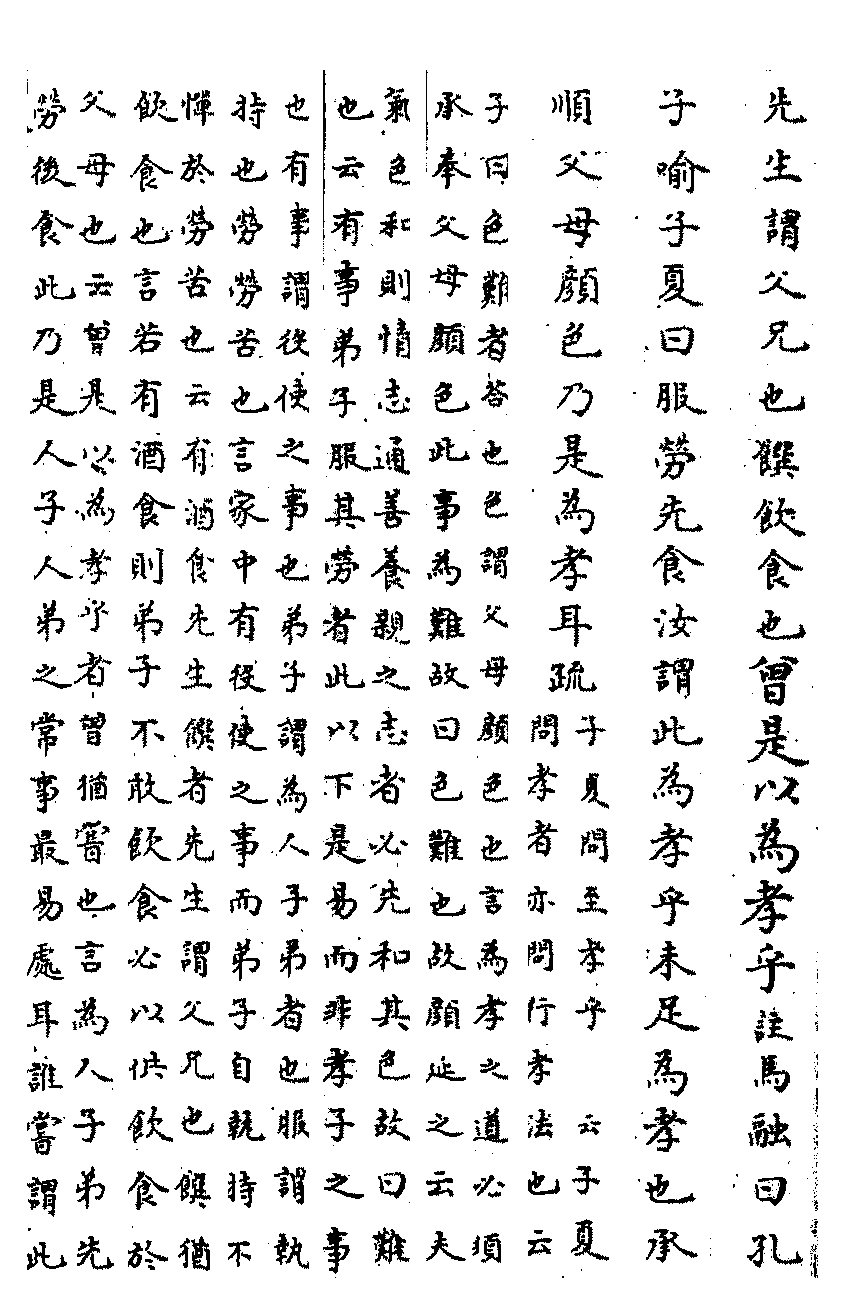 先生謂父兄也饌飲食也曾是以為孝乎註馬融曰孔
子喻子夏曰服勞先食汝謂此為孝乎未足為孝也承
順父母顏色乃是為孝耳疏
子夏問至孝乎　云子夏
問孝者亦問行孝法也云
子曰色難者答也色謂父母顏色也言為孝之道必須
承奉父母顏色此事為難故曰色難也故顏延之云夫
氣色和則情志通善養親之志者必先和其色故曰難
也云有事弟子服其勞者此以下是易而非孝子之事
也有事謂役使之事也弟子謂為人子弟者也服謂執
持也勞勞苦也言家中有役使之事而弟子自執持不
憚於勞苦也云有酒食先生饌者先生謂父兄也饌猶
飲食也言若有酒食則弟子不敢飲食必以供飲食於
父母也云曾是以為孝乎者曾猶嘗也言為人子弟先
勞後食此乃是人子人弟之常事最易處耳誰嘗謂此